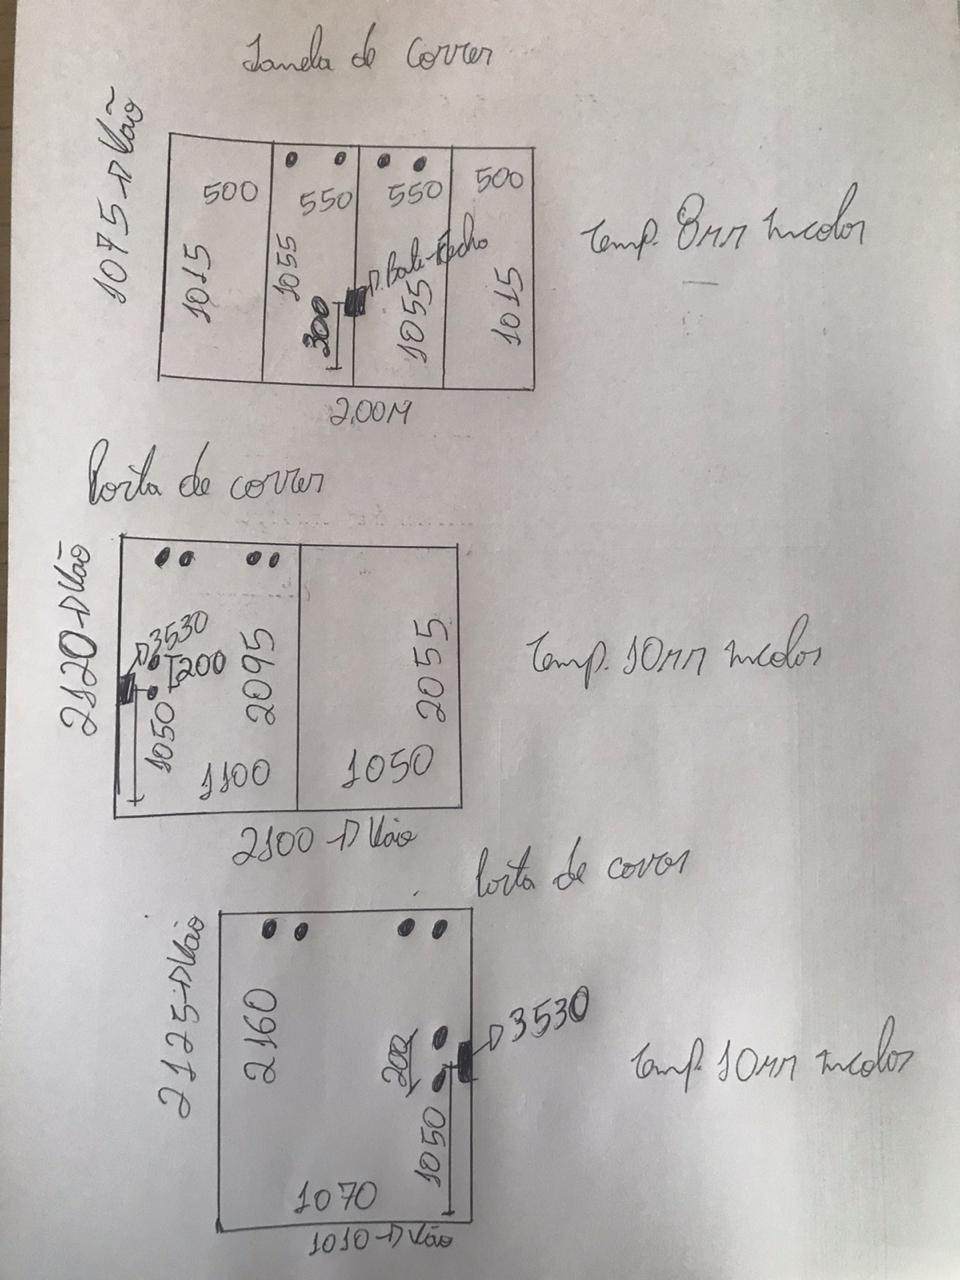 Janela de Correr
1075 → Vão
500
550
550
500
1015
1055
→ Bate-Fecho
300
1055
1015
2,00M
Temp. 8mm Incolor
Porta de correr
2120 → Vão
→ 3530
200
1050
2095
1100
2055
1050
2100 → Vão
Temp. 10mm Incolor
Porta de correr
2125 → Vão
2160
200
→ 3530
1050
1070
1010 → Vão
Temp. 10mm incolor